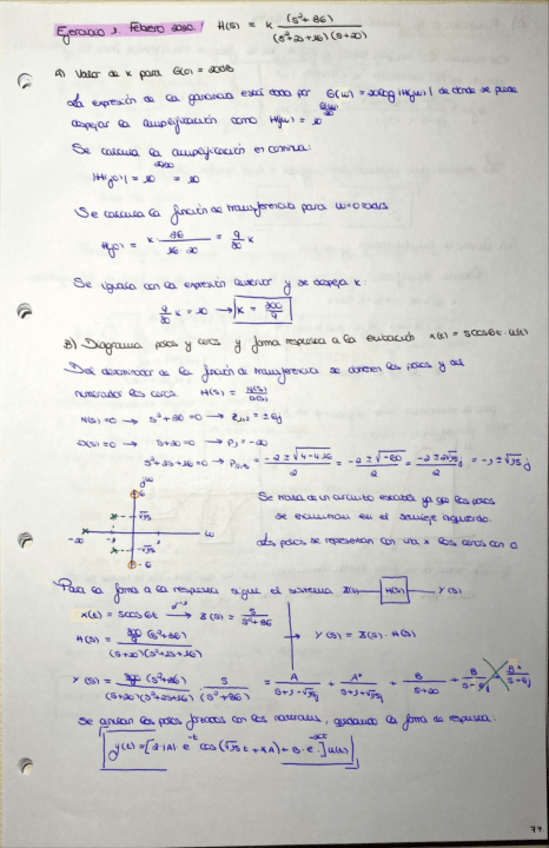 Ejercicio 1. Febrero 2020. H(s) = k (s²+36) / (s²+2s+16)(s+20)
A) Valor de k para G(0) = 20dB
La expresión de la ganancia está dada por G(w) = 20log|H(jw)| de donde se puede
despejar la amplificación como H(jw) = 10^(G(w)/20)
Se calcula la amplificación en continua:
|H(j0)| = 10^(20/20) = 10
Se calcula la función de transferencia para w=0 rad/s
H(j0) = k · 36 / 16·20 = 9/80 k
Se iguala con la expresión anterior y se despeja k:
9/80 k = 10 → k = 800/9
B) Diagrama polos y ceros y forma respuesta a la excitación x(t) = 5cos6t·u(t)
Del denominador de la función de transferencia se obtienen los polos y del
numerador los ceros. H(s) = N(s)/D(s)
N(s)=0 → s²+36=0 → z₁,₂ = ±6j
D(s)=0 → s+20=0 → p₁ = -20
s²+2s+16=0 → = -2±√(4-4·16) / 2 = -2±√-60 / 2 = -2±2√15j / 2 = -1±√15 j
jw
6
√15
-20
-1
1
w
-√15
-6
Se trata de un circuito estable ya que los polos
se encuentran en el semieje izquierdo.
Los polos se representan con una x los ceros con o
Para la forma de la respuesta sigue el sistema X(s) H(s) Y(s)
x(t) = 5cos6t → X(s) = s / s²+36
H(s) = (s²+36) / (s+20)(s²+2s+16)
Y(s) = X(s)·H(s)
Y(s) = (s²+36) / (s+20)(s²+2s+16) · s / (s²+36) = A / s+1-√15j + A* / s+1+√15j + B / s+20 + B / s-6j + B* / s+6j
Se anulan los polos forzados con los naturales, quedando la forma de respuesta:
y(t) = [2·|A| e^-t cos(√15 t + ∠A) + B·e^-20t] u(t)
77